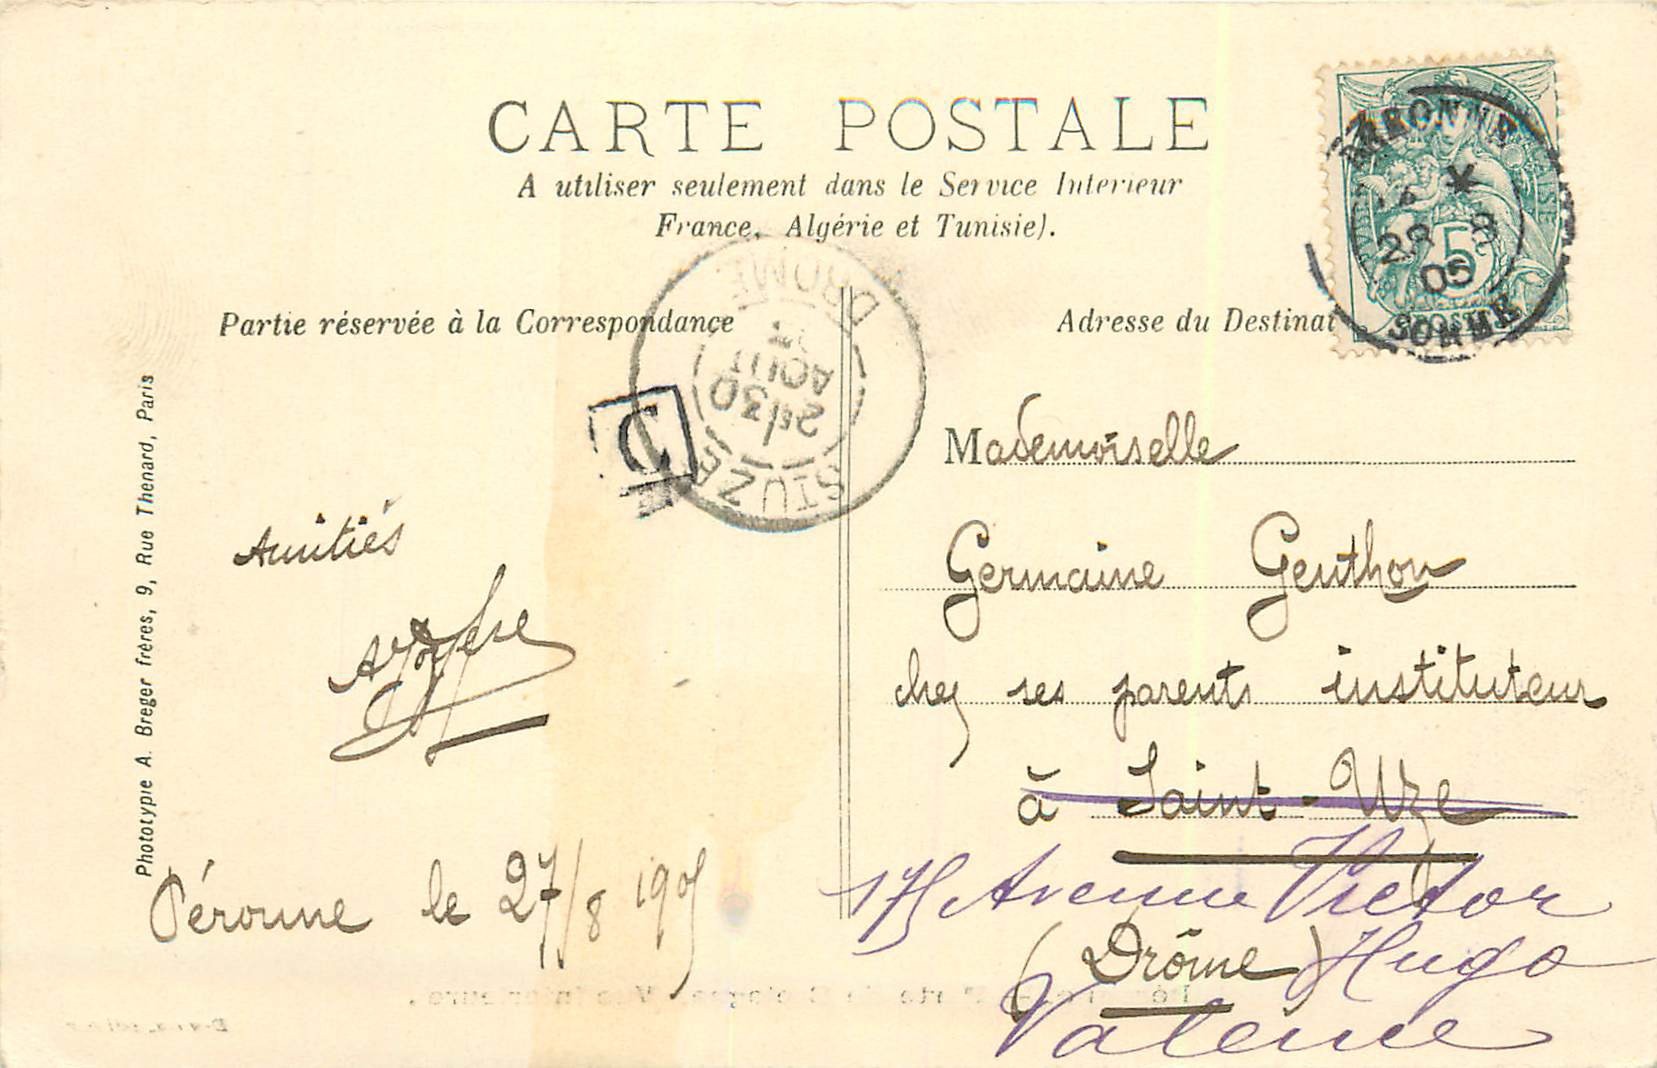 CARTE POSTALE
A utiliser seulement dans le Service Interieur
France, Algérie et Tunisie).
Partie réservée à la Correspondance
Adresse du Destinat
PERONNE
28 8
05
SOMME
5
POSTES
DROME
AOUT
2E/30
ST UZE
D
Phototypie A. Breger frères, 9, Rue Thenard, Paris
Amitiés
Péronne le 27/8 1905
Mademoiselle
Germaine Genthon
chez ses parents instituteur
à Saint-Uze
175 Avenue Victor
Hugo
(Drôme)
Valence